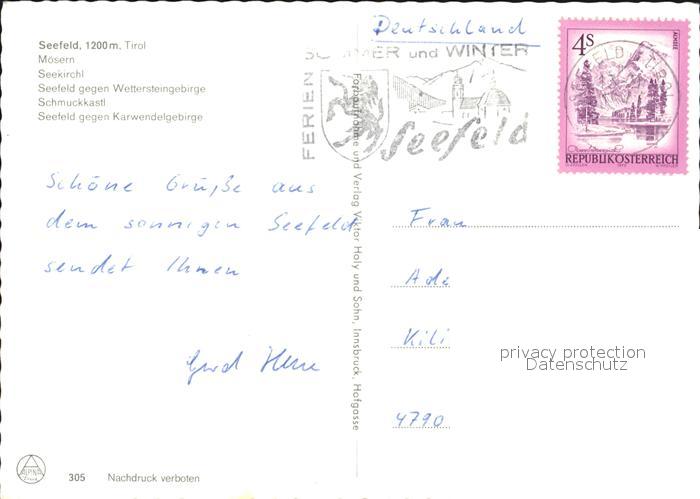 Seefeld, 1200m. Tirol
Mösern
Seekirchl
Seefeld gegen Wettersteingebirge
Schmuckkastl
Seefeld gegen Karwendelgebirge
Deutschland
FERIEN
SOMMER und WINTER
Seefeld
4s
ALMSEE
REPUBLIK ÖSTERREICH
Schöne Grüße aus
dem sonnigen Seefeld
sendet Ihnen
Farbaufnahme und Verlag Viktor Holy und Sohn, Innsbruck, Hofgasse
Frau
Ade
Kili
4790
privacy protection
Datenschutz
ALPINA
305 Nachdruck verboten